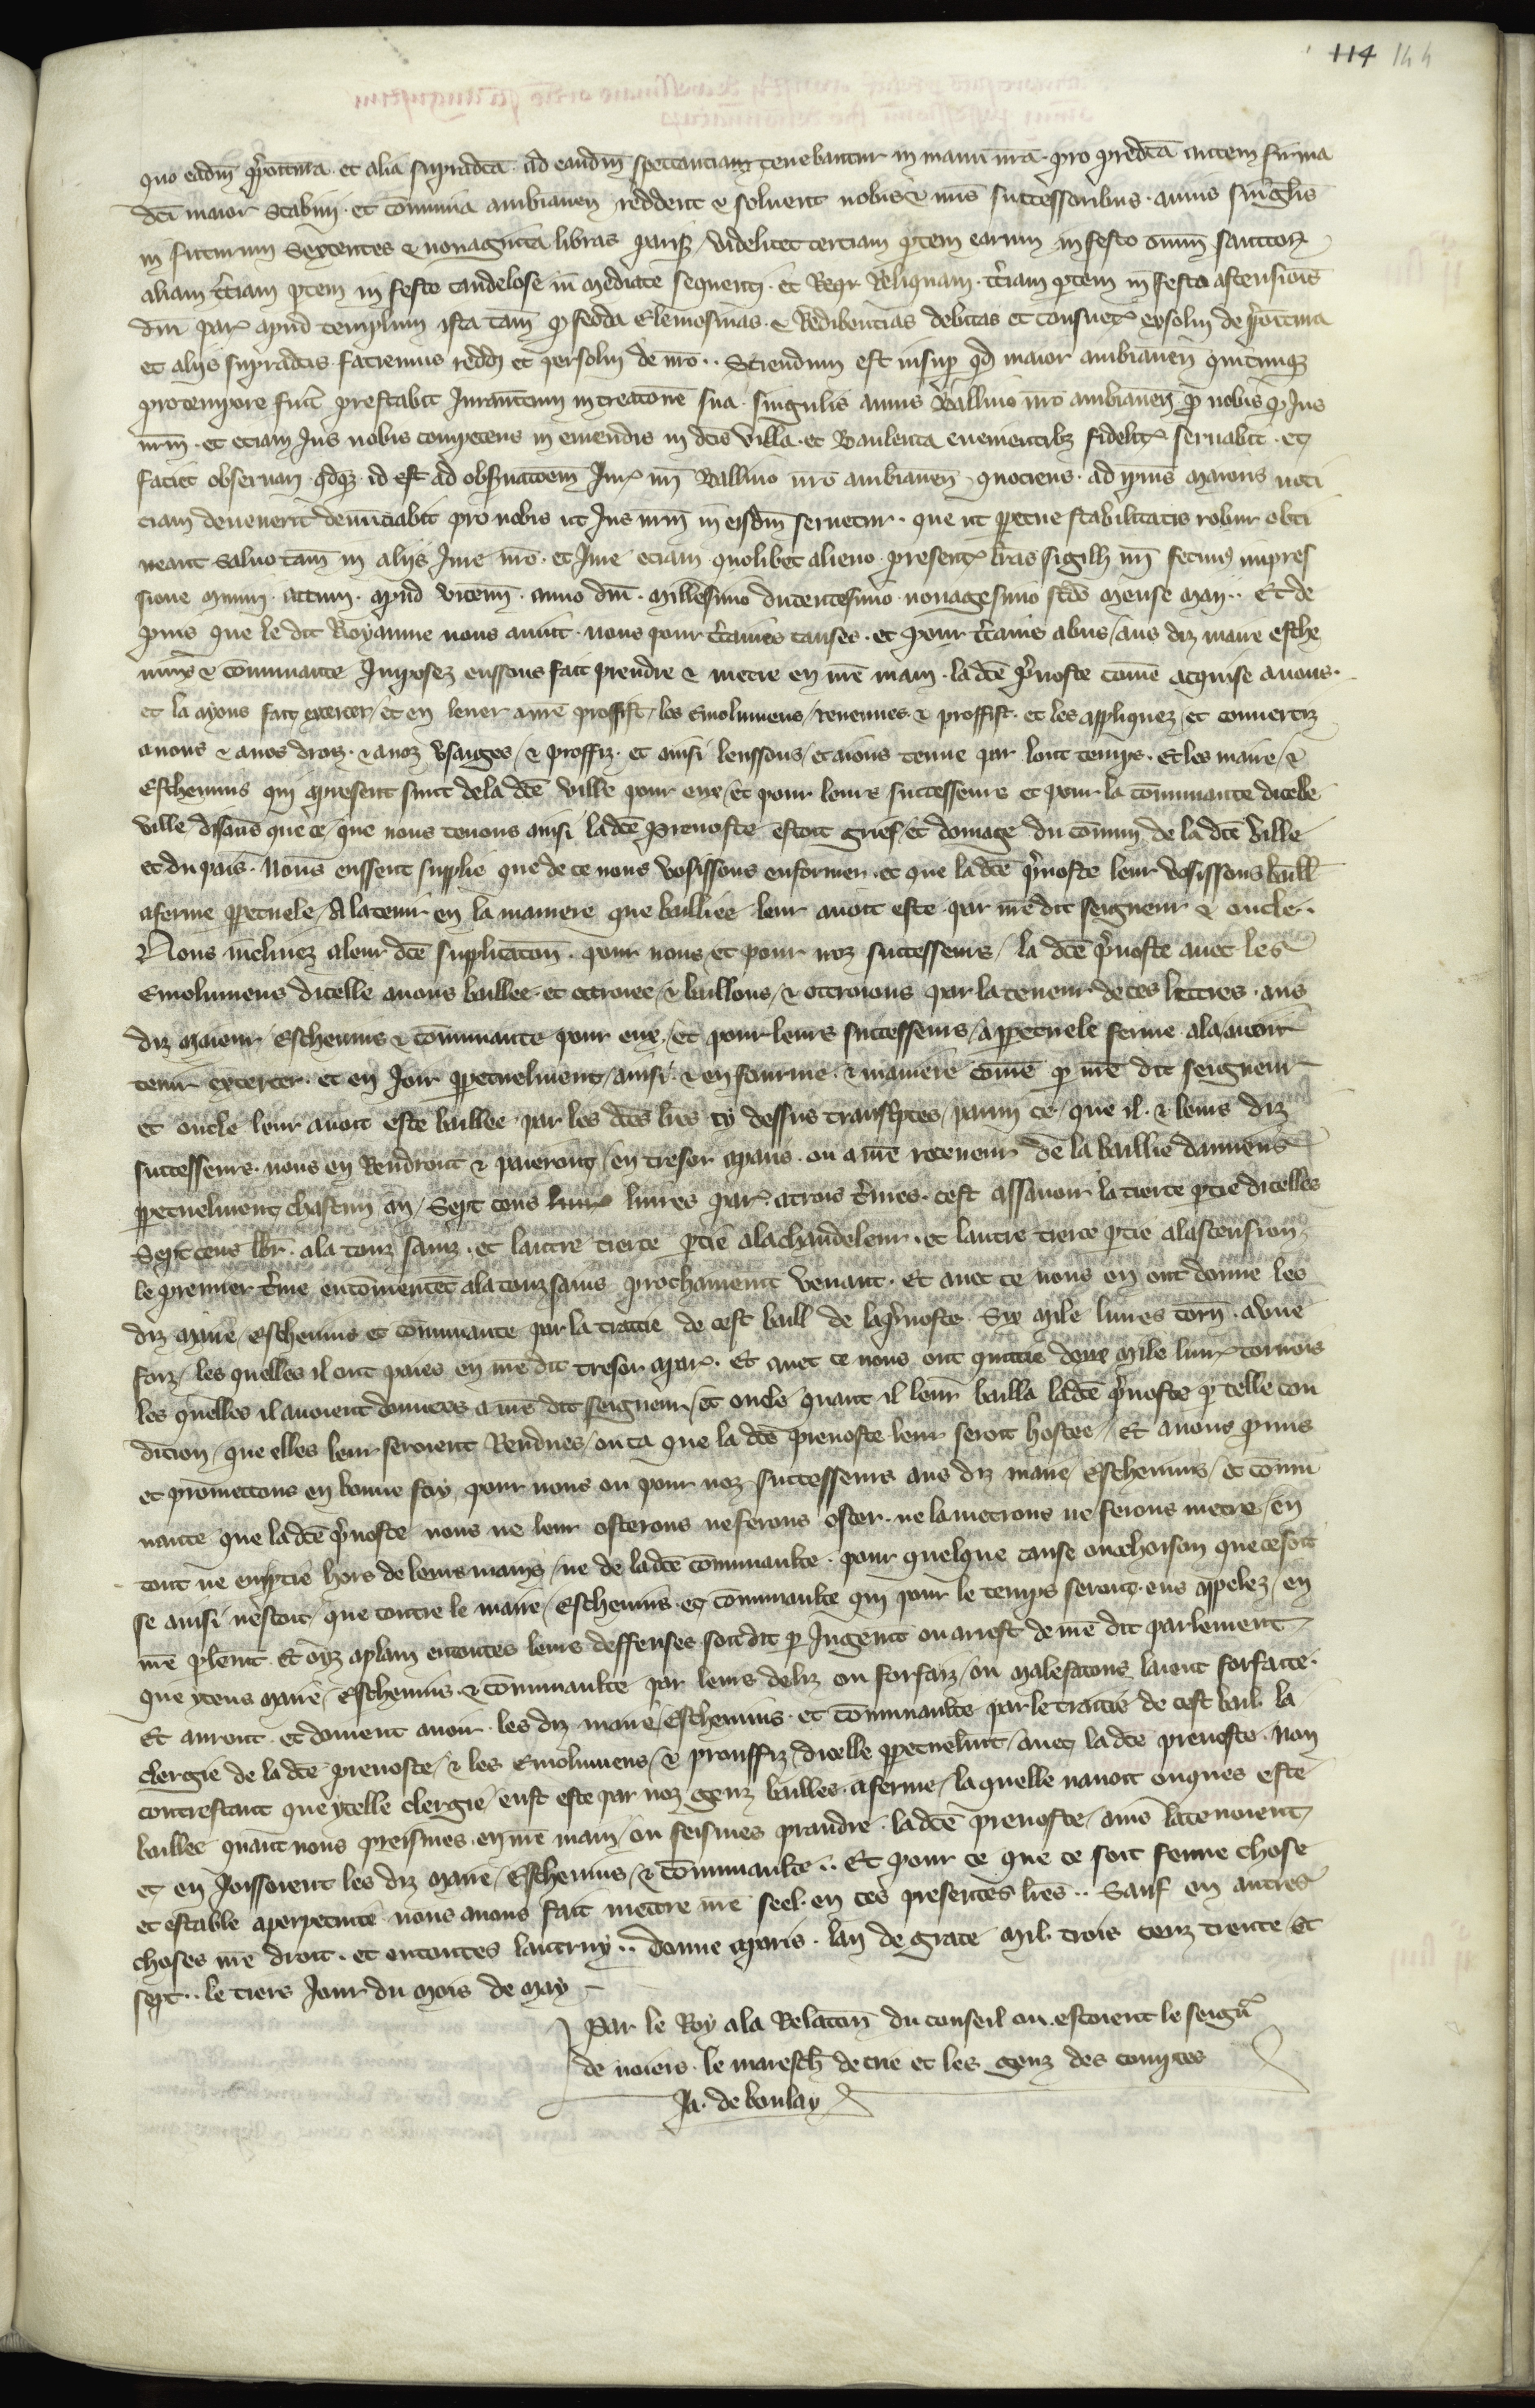 114 144
quo eadm p̃põitura et alia supradc̃a ad eandm̃ spectancia tenebantur in manu nrã pro predc̃a autem firma
dc̃i maior Scabini et cõmunia ambianen̄ reddent & soluent nobis & nr̃is successoribus annis singlis̃
in futurum Sexcentas & nonaginta libras paris̃ videlicet terciam p̃tem earum in festo omniũ sanctor̃
aliam t̃ciam p̃tem in festo candelose in mediate sequenti et Reliquam t̃ciam p̃tem in festo ascensiois̃
dnĩ par̃ apud templum ista tam̃ q̃ feoda Elemosinas & Redibentias debitas et consuet̃ exsolui de p̃põitura
et alijs supradc̃is faciemus reddi et persolui de nrõ .. Sciendum est insup̃ qd̃ maior ambianen̄ quicumq̃
pro tempore fuit̃ prestabit Iuram̃tum in creatione sua singulis annis Balliuo nrõ ambianen̄ pro nobis q̃ Ius
nrm̃ et eciam Ius nobis competens in emendis in dc̃is villa et Banleuca euenientibz fidelit̃ seruabit et
faciet obseruari qdq̃ id est ad obseruacõem Iur̃ nr̃i Balliuo nrõ ambianen̄ quociens ad ipius maioris noti
ciam deuenerit denunciabit pro nobis ut Ius nrm̃ in eisdm̃ seruetur .. que ut p̃petue stabilitatis robur obti
neant saluo tam̃ in alijs Iure nrõ et Iure eciam quolibet alieno present̃ lr̃as sigilli nr̃i fecimus impres
sione muniri actum apud vicenñ anno dnĩ millesimo ducentesimo nonagesimo scdõ mense maij .. Et de
puis que le dit Royaume nous auint nous pour c̃taines causes et pour c̃tains abus / aus diz maire esche
uins & communaute Imposez eussons fait prendre & metre en nrẽ main la dcẽ p̃uoste comẽ acquise a nous
et la ayons fait exercer / et en leuer a nrẽ proffit / les Emolumens / reuenues & proffist et les appliquez et conuertiz
a nous & a nos drois & a noz vsaiges / & proffiz et ainsi leussons / et aions tenue par lonc temps Et les maire / &
Escheuins qui apresent sunt de la dcẽ ville pour eux / et pour leurs successeurs et pour la cõmunaute dicelle
ville disans que ce / que nous tenons ainsi la dcẽ preuoste estoit grief / et domage du cõmun de la dcẽ ville
et du pais Nous eussent supplie que de ce nous vosissons enformer et que la dcẽ p̃uoste leur vosissons baill̃
a ferme p̃petuele / A la tenir en la maniere que baillee leur auoit este par nrẽ dit seigneur & oncle ..
Nous inclinez a leur dcẽ supplicacion pour nous et pour noz successeurs / la dcẽ p̃uoste auec les
Emolumens dicelle auons baillee et octroiee / & baillons / & ottroions par la teneur de ces lettres aus
diz maieur / Escheuins & cõmunaute pour eux / et pour leurs successeurs / a p̃petuele ferme a la auoir
tenir exercer et en Ioir p̃petuelment / ainsi & en fourme & maniere comẽ p̃ nrẽ dit seigneur
et oncle leur auoit este baillee par les dcẽs lr̃es cy dessus transc̃ptes / parmi ce / que il & leurs diz
successeurs nous en Rendront & paieront / en tresor a paris ou a nrẽ receueur de la baillie damiens
p̃petuelment chascun an / Sept cens liures par̃ a trois t̃mes cest assauoir la tierce p̃tie dicelles
Sept cens lb̃r a la touz sainz et lautre tierce p̃tie a la chandeleur et lautre tierce p̃tie a lascension
le premier t̃me en comencet a la touzsains prochainemt̃ venant Et auec ce nous en ont donne les
diz maire / Escheuins et cõmunaute par la traictie de cest baill de la p̃uoste Six mile liures torñ a vne
foiz / les quelles il ont paies en nrẽ dit tresor a par̃ Et auec ce nous ont quictie deux mile liur̃ tornois
les quelles il auoient donnees a nrẽ dit seigneur / et oncle quant il leur bailla la dcẽ p̃uoste p̃ telle con
dicion / que elles leur seroient Rendues / ou cas que la dcẽ preuoste leur seroit hostee / Et auons p̃mis
et promettons en bonne foy pour nous ou pour noz successeurs aus diz maire / Escheuins / et cõmu
naute que la dcẽ p̃uoste nous ne leur osterons ne ferons oster ne la metrons ne ferons metre / en
tout ne en p̃tie hors de leurs mains / ne de la dcẽ cõmunaulte pour quelque cause ou choison que ce soit
se ainsi nestoit / que contre le maire / Escheuins et cõmunaulte qui pour le temps seront eus appelez / en
nrẽ plem̃t Et oyz a plain en toutes leurs deffenses soit dit p̃ Iugem̃t ou arrest de nrẽ dit parlement
que yceus maire / Escheuins & cõmunaulte par leurs deliz ou forfaiz / ou malefacons laient forfaicte
Et auront et doiuent auoir les diz maire / Escheuins et cõmunaulte par le traictie de cest bail la
clergie de la dcẽ preuoste / & les Emolumens / & prouffiz / dicelle p̃petuelm̃t / auec la dcẽ preuoste Non
contrestant que ycelle clergie eust este par noz genz baillee a ferme / la quelle nauoit onques este
baillee quant nous preismes en nrẽ main / ou feismes prandre la dcẽ preuoste / ains la tenoient
et en Ioissoient les diz maire / Escheuins / & cõmunaulte .. Et pour ce que ce soit ferme chose
et estable a perpetuite nous auons fait mettre nrẽ seel en ces presentes lr̃es .. Sauf en autres
choses nrẽ droit et en toutes lautruy .. Donne a paris lan de grace mil trois cenz trente / Et
sept .. le tiers Iour du mois de may
Par le Roy a la Relacion du conseil ou estoient le seign̄r
de noiers le maresch̃ de trie et les genz des comptes
Ja. de boulay